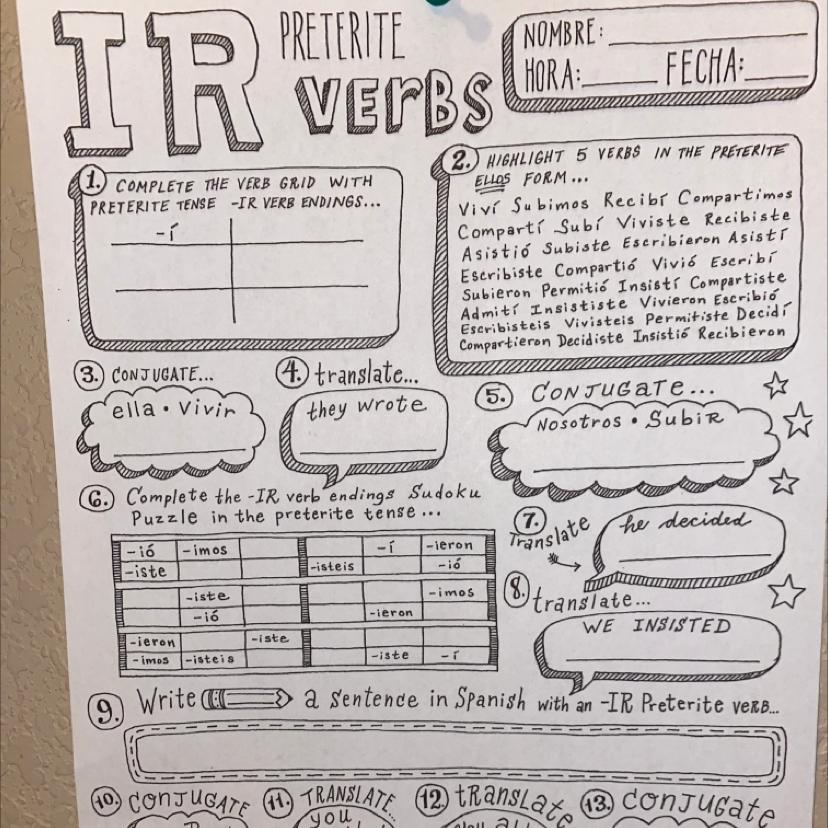 IR PRETERITE VERBS
NOMBRE:
HORA: FECHA:
1. COMPLETE THE VERB GRID WITH
PRETERITE TENSE -IR VERB ENDINGS...
-í
2. HIGHLIGHT 5 VERBS IN THE PRETERITE
ELLOS FORM...
Viví Subimos Recibí Compartimos
Compartí Subí Viviste Recibiste
Asistió Subiste Escribieron Asistí
Escribiste Compartió Vivió Escribí
Subieron Permitió Insistí Compartiste
Admití Insististe Vivieron Escribió
Escribisteis Vivisteis Permitiste Decidí
Compartieron Decidiste Insistió Recibieron
3. CONJUGATE...
ella • Vivir
4. translate...
they wrote
5. CONJUGATE...
Nosotros • SubiR
6. Complete the -IR verb endings Sudoku
Puzzle in the preterite tense...
-ió -imos -í -ieron
-iste -isteis -ió
-iste -imos
-ió -ieron
-ieron -iste
-imos -isteis -iste -í
7. Translate
he decided
8. translate...
WE INSISTED
9. Write a sentence in Spanish with an -IR Preterite veRB...
10. CONJUGATE
11. TRANSLATE...
you
12. tRANSLATE
13. CONJUGATE